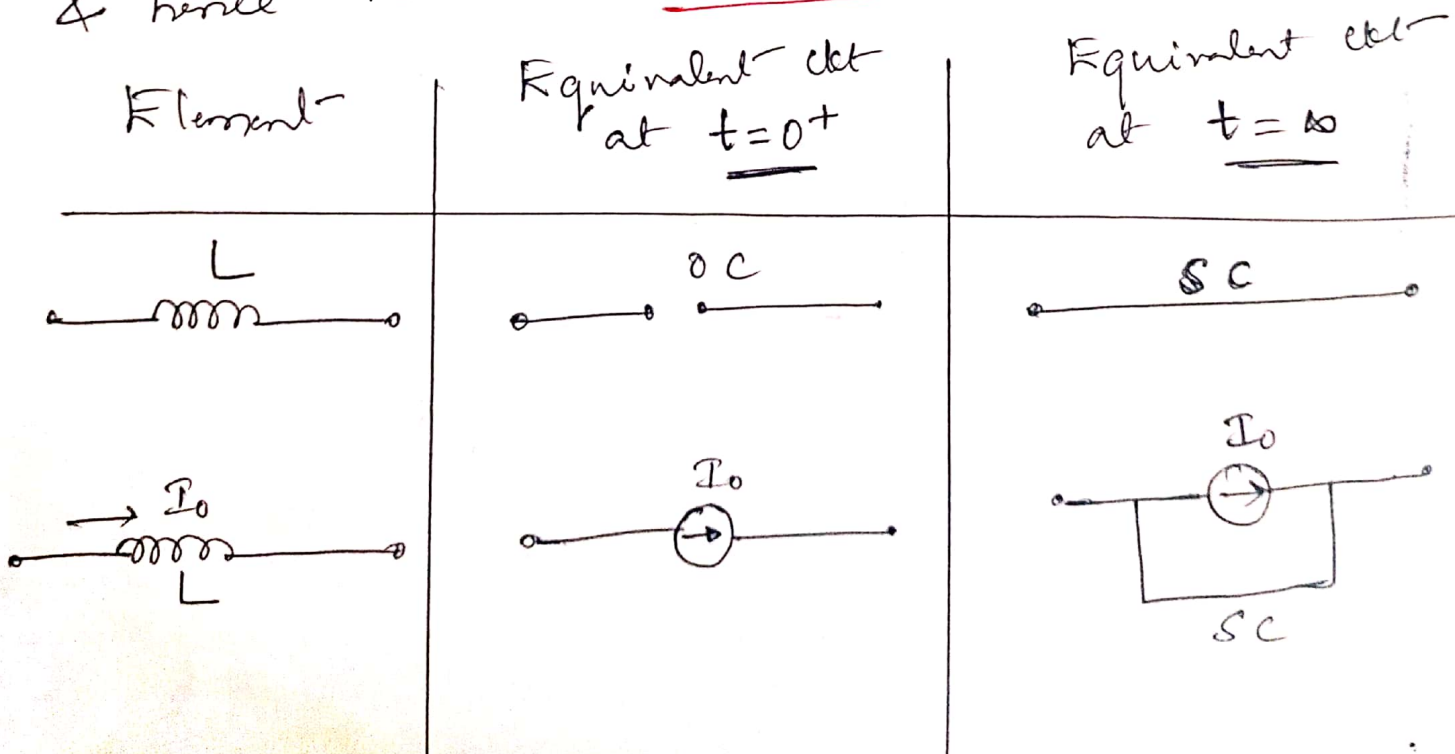 & hence
Element
Equivalent ckt
at t=0+
Equivalent ckt
at t=∞
L
OC
SC
I₀
L
I₀
I₀
SC